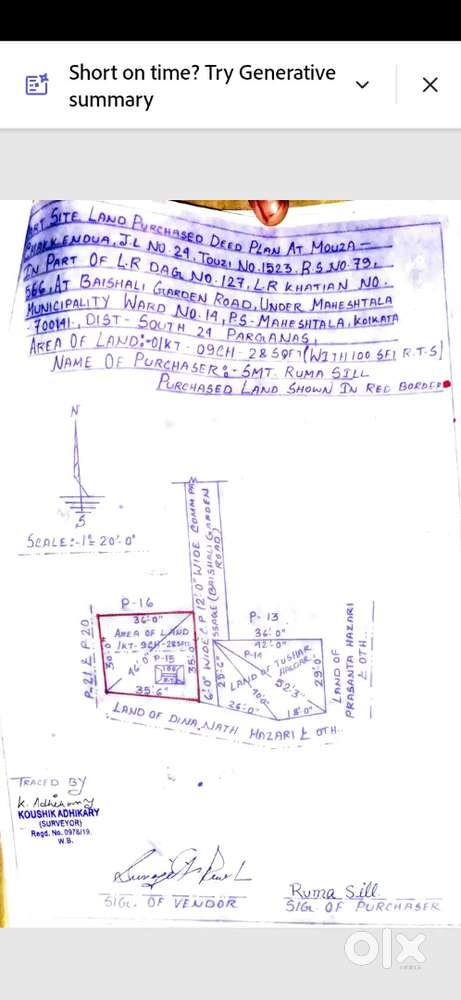 Short on time? Try Generative
summary
SITE LAND PURCHASED DEED PLAN AT MOUZA-
J.L NO. 24, TOUZI NO. 1523, R.S NO. 79,
IN PART OF L.R DAG NO. 127, L.R KHATIAN NO.
566, AT BAISHALI GARDEN ROAD, UNDER MAHESHTALA
MUNICIPALITY WARD NO. 14, P.S- MAHESHTALA, KOLKATA
-700141, DIST- SOUTH 24 PARGANAS,
AREA OF LAND:-01KT-09CH-28SQFT (WITH 100 SFT R.T.S)
NAME OF PURCHASER:- SMT. RUMA SILL
PURCHASED LAND SHOWN IN RED BORDER
N
S
SCALE:-1"=20'-0"
12'-0" WIDE COMM PASSAGE (BAISHALI GARDEN ROAD)
P-16
36'-0"
AREA OF LAND
1KT-9CH-28
P-15
46'-0"
35'-0"
35'-6"
P-21 & P-20
6'-0" WIDE C.P
P-13
36'-0"
42'-0"
P-14
LAND OF TUSHAR
HALDAR
52'-3"
29'-0"
26'-0"
18'-0"
LAND OF
PRASANTA HAZARI
& OTH..
LAND OF DINA NATH HAZARI & OTH..
TRACED BY
K. Adhikary
KOUSHIK ADHIKARY
(SURVEYOR)
Regd. No. 0978/19
W.B.
SIG. OF VENDOR
Ruma Sill
SIG. OF PURCHASER
olx
INDIA